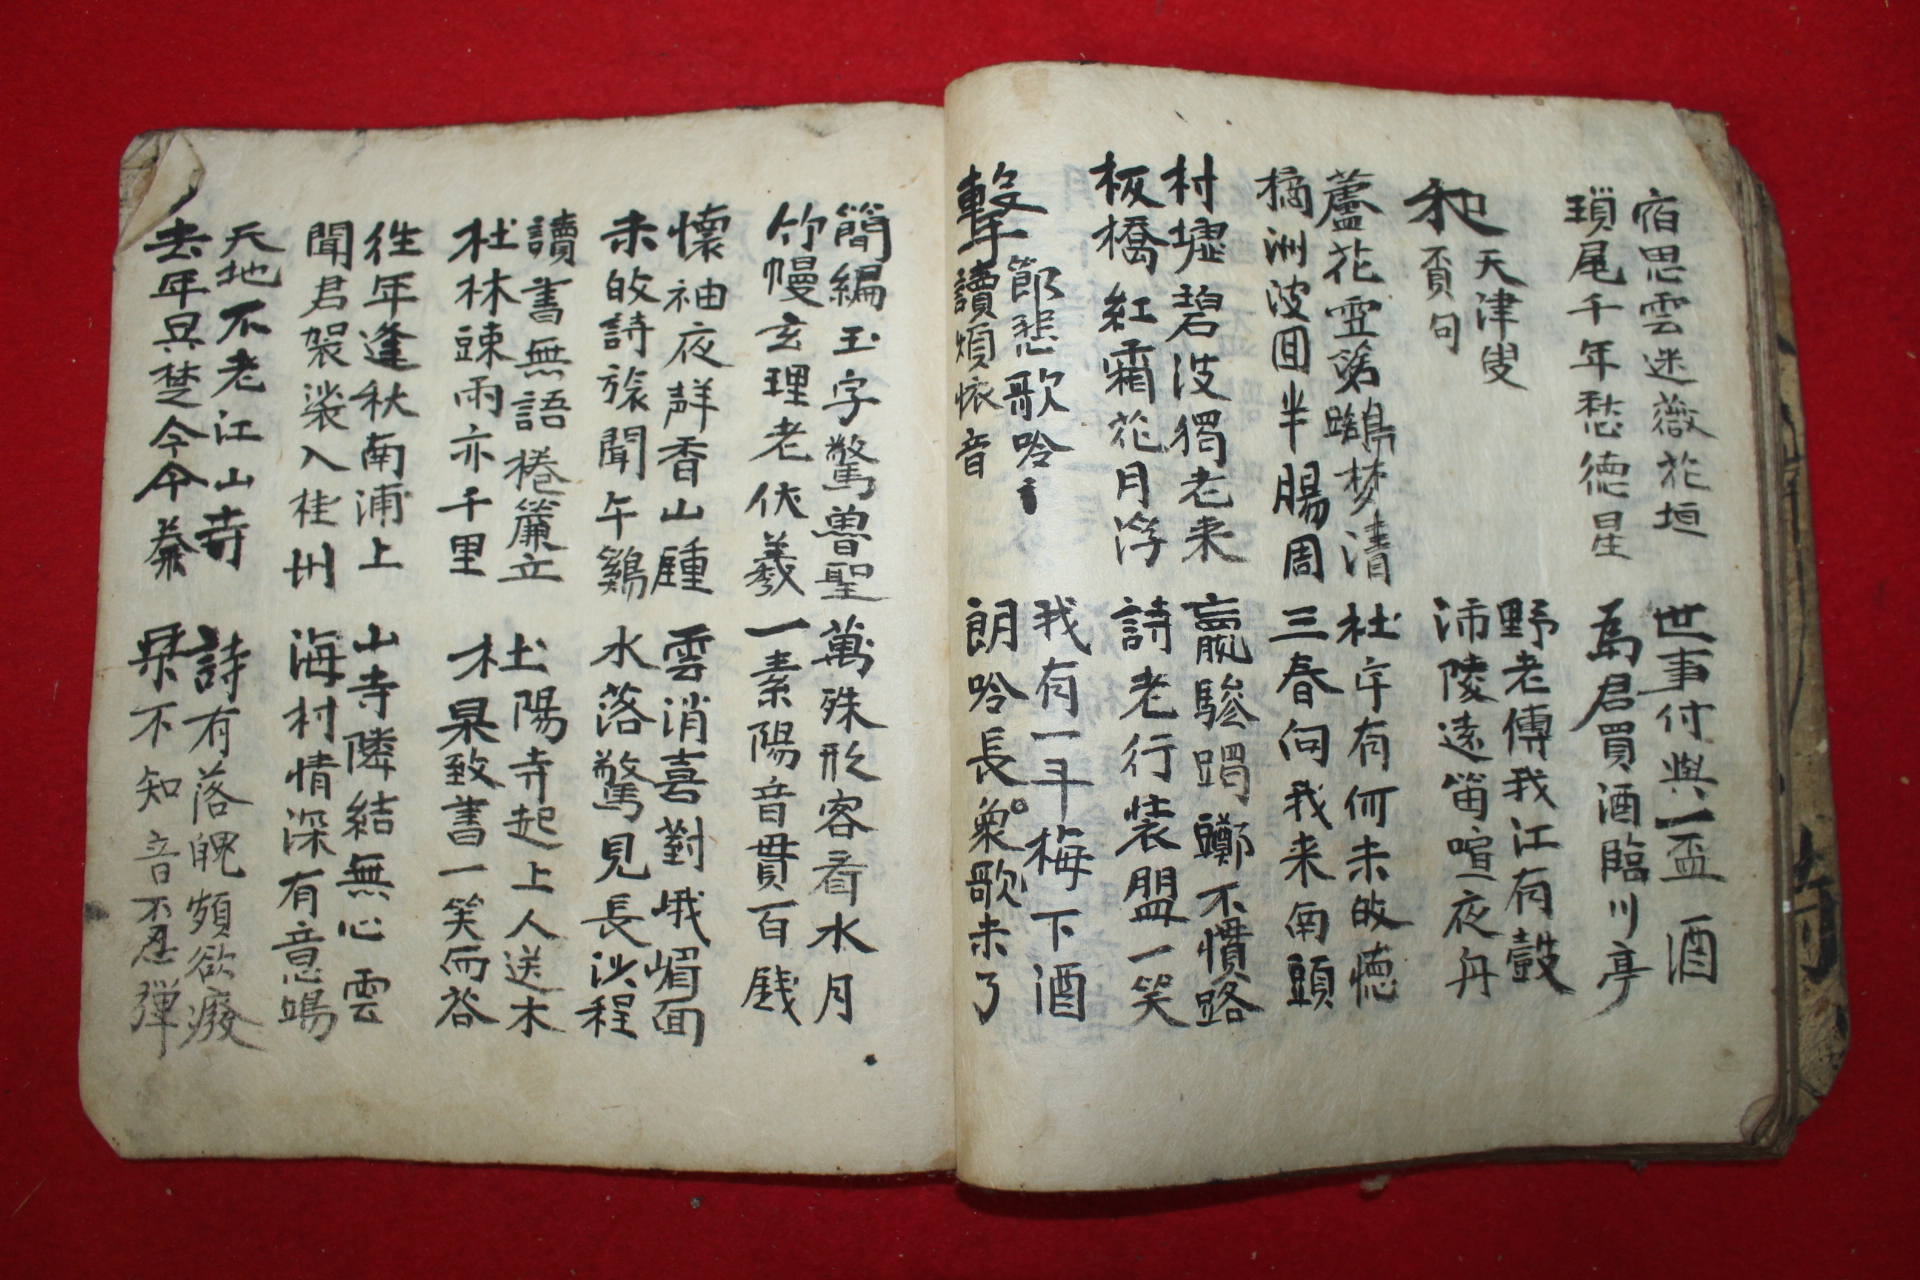 宿思雲迷薇花垣
瑣尾千年愁德星
世事付與一盃酒
為君買酒臨川亭
和
天津叟
賡句
野老傳我江有鼓
沛陵遠笛喧夜舟
蘆花雪落鷗梦淸
橘洲波回半腸周
杜字有何未歧德
三春向我来南頭
村墟碧波獨老来
板橋紅霜花月浮
羸驂躅躑不慣路
詩老行裝盟一笑
擊節悲歌吟
讀煩恢音
我有一斗梅下酒
朗吟長篼歌未了
簡編玉字驚曽聖
竹幔玄理老伏羲
萬殊形容看水月
一素陽音貫百戔
懷袖夜群香山腫
未的詩旅聞午鷄
雲消喜對峨嵋面
水落驚見長沙程
讀書無語捲簾立
杜林疎雨亦千里
杜陽寺起上人送木
杲致書一笑而答
徃年逢秋南浦上
聞君袈裟入桂州
山寺隣結無心雲
海村情深有意鴎
天地不老江山寺
去年吳楚今今秦
詩有落魄頻欲廢
琹不知音不忍彈